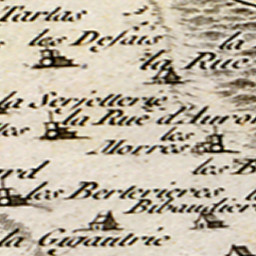 Tartas
les Defais
la
la Rue
la Serjetterie
la Rue d'Auron
les
les
Morres
les B
les Berterieres
Bibaudier
la Gigautrie